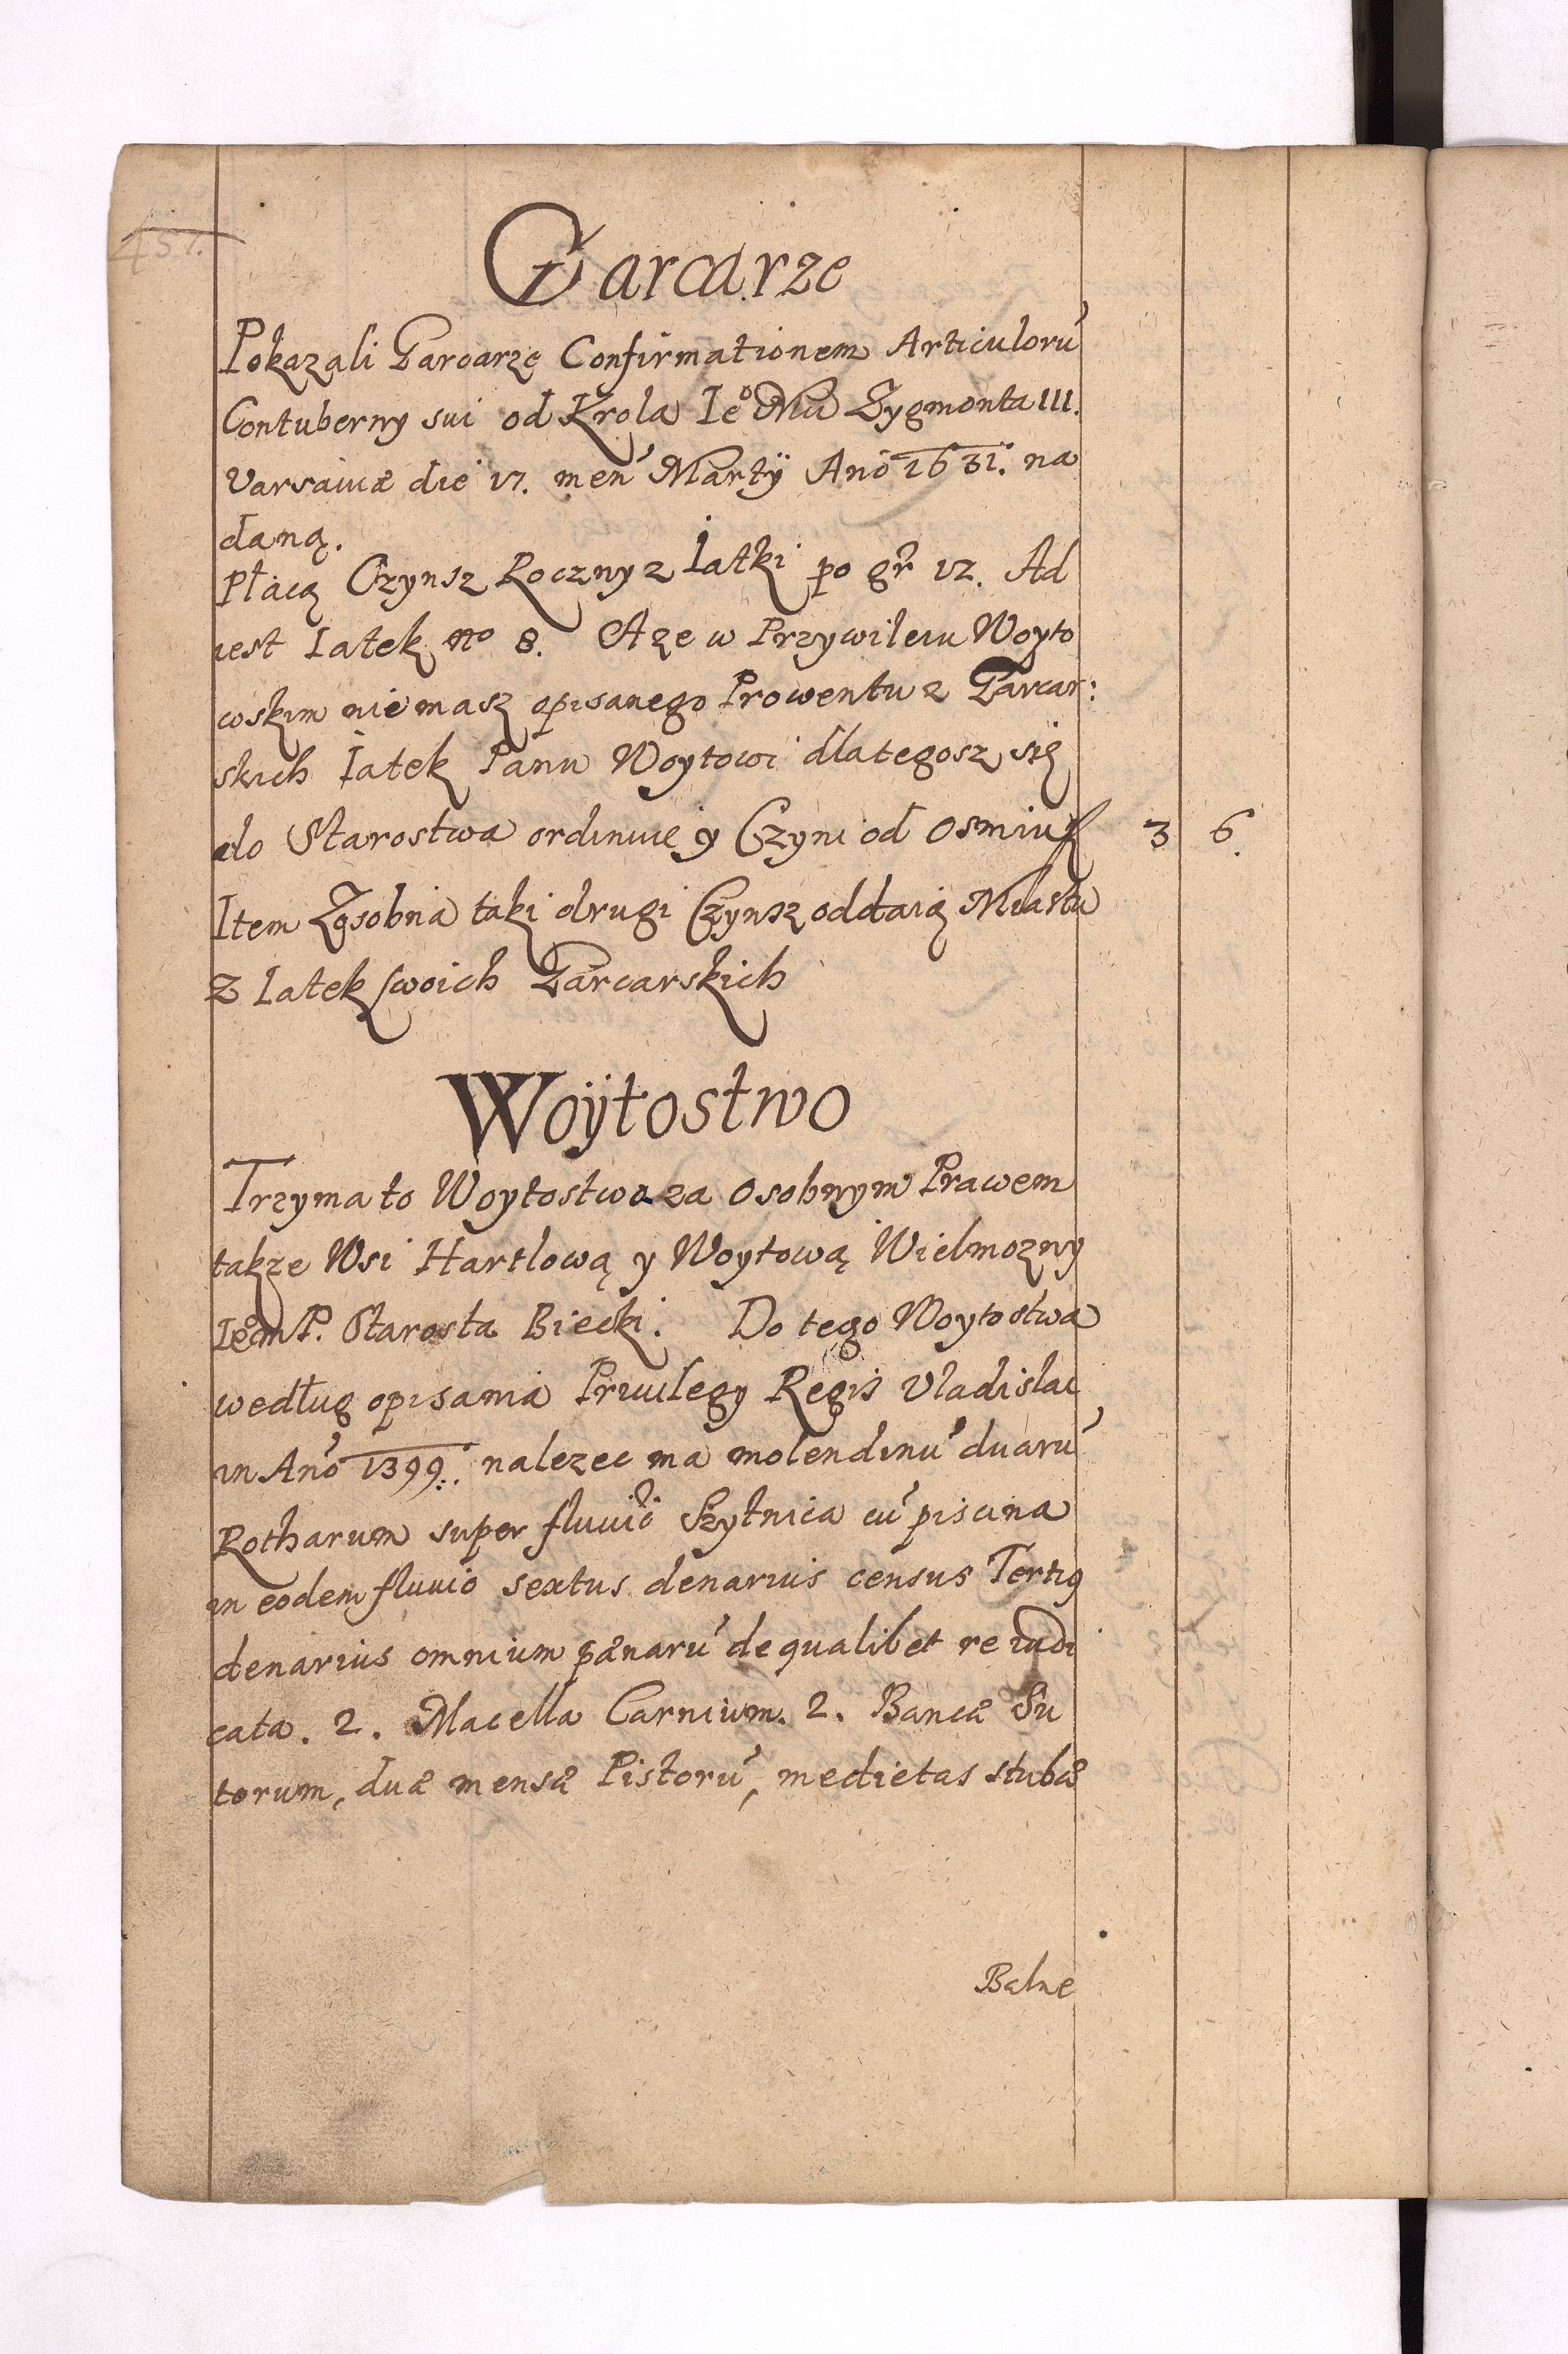 457.
Garcarze
Pokazali Garcarze Confirmationem Articuloru
Contuberny sui od Krola Ieo Mci Zygmonta III.
Varsaviæ die 17. men Martÿ Ano 1631. na
daną.
Płacą Czynsz Roczny z Iatki po gr 12. Ad
iest Iatek no 8. A ze w Przywileiu Woyto
wskim nie masz opisanego Prowentu z Garcar:
skich Iatek Panu Woytowi dlategosz się
do Starostwa ordinuie y Czyni od Osmiu f 3 6.
Item Zosobna taki drugi Czynsz oddaią Miastu
z Iatek swoich Garcarskich
Woÿtostwo
Trzyma to Woytostwo za Osobnym Prawem
takze Wsi Hartlową y Woytową Wielmozny
Ieom P. Starosta Biecki. Do tego Woytostwa
według opisania Privilegy Regis Vladislai
in Ano 1399. nalezec ma molendinu duaru
Rotharum super fluvio Szytnica cu piscina
in eodem fluvio sextus denarius census Tertius
denarius omnium pænaru de qualibet re iudi
cata. 2. Macella Carnium. 2. Bancæ Su
torum, duæ mensæ Pistoru, medietas stubæ
Balne